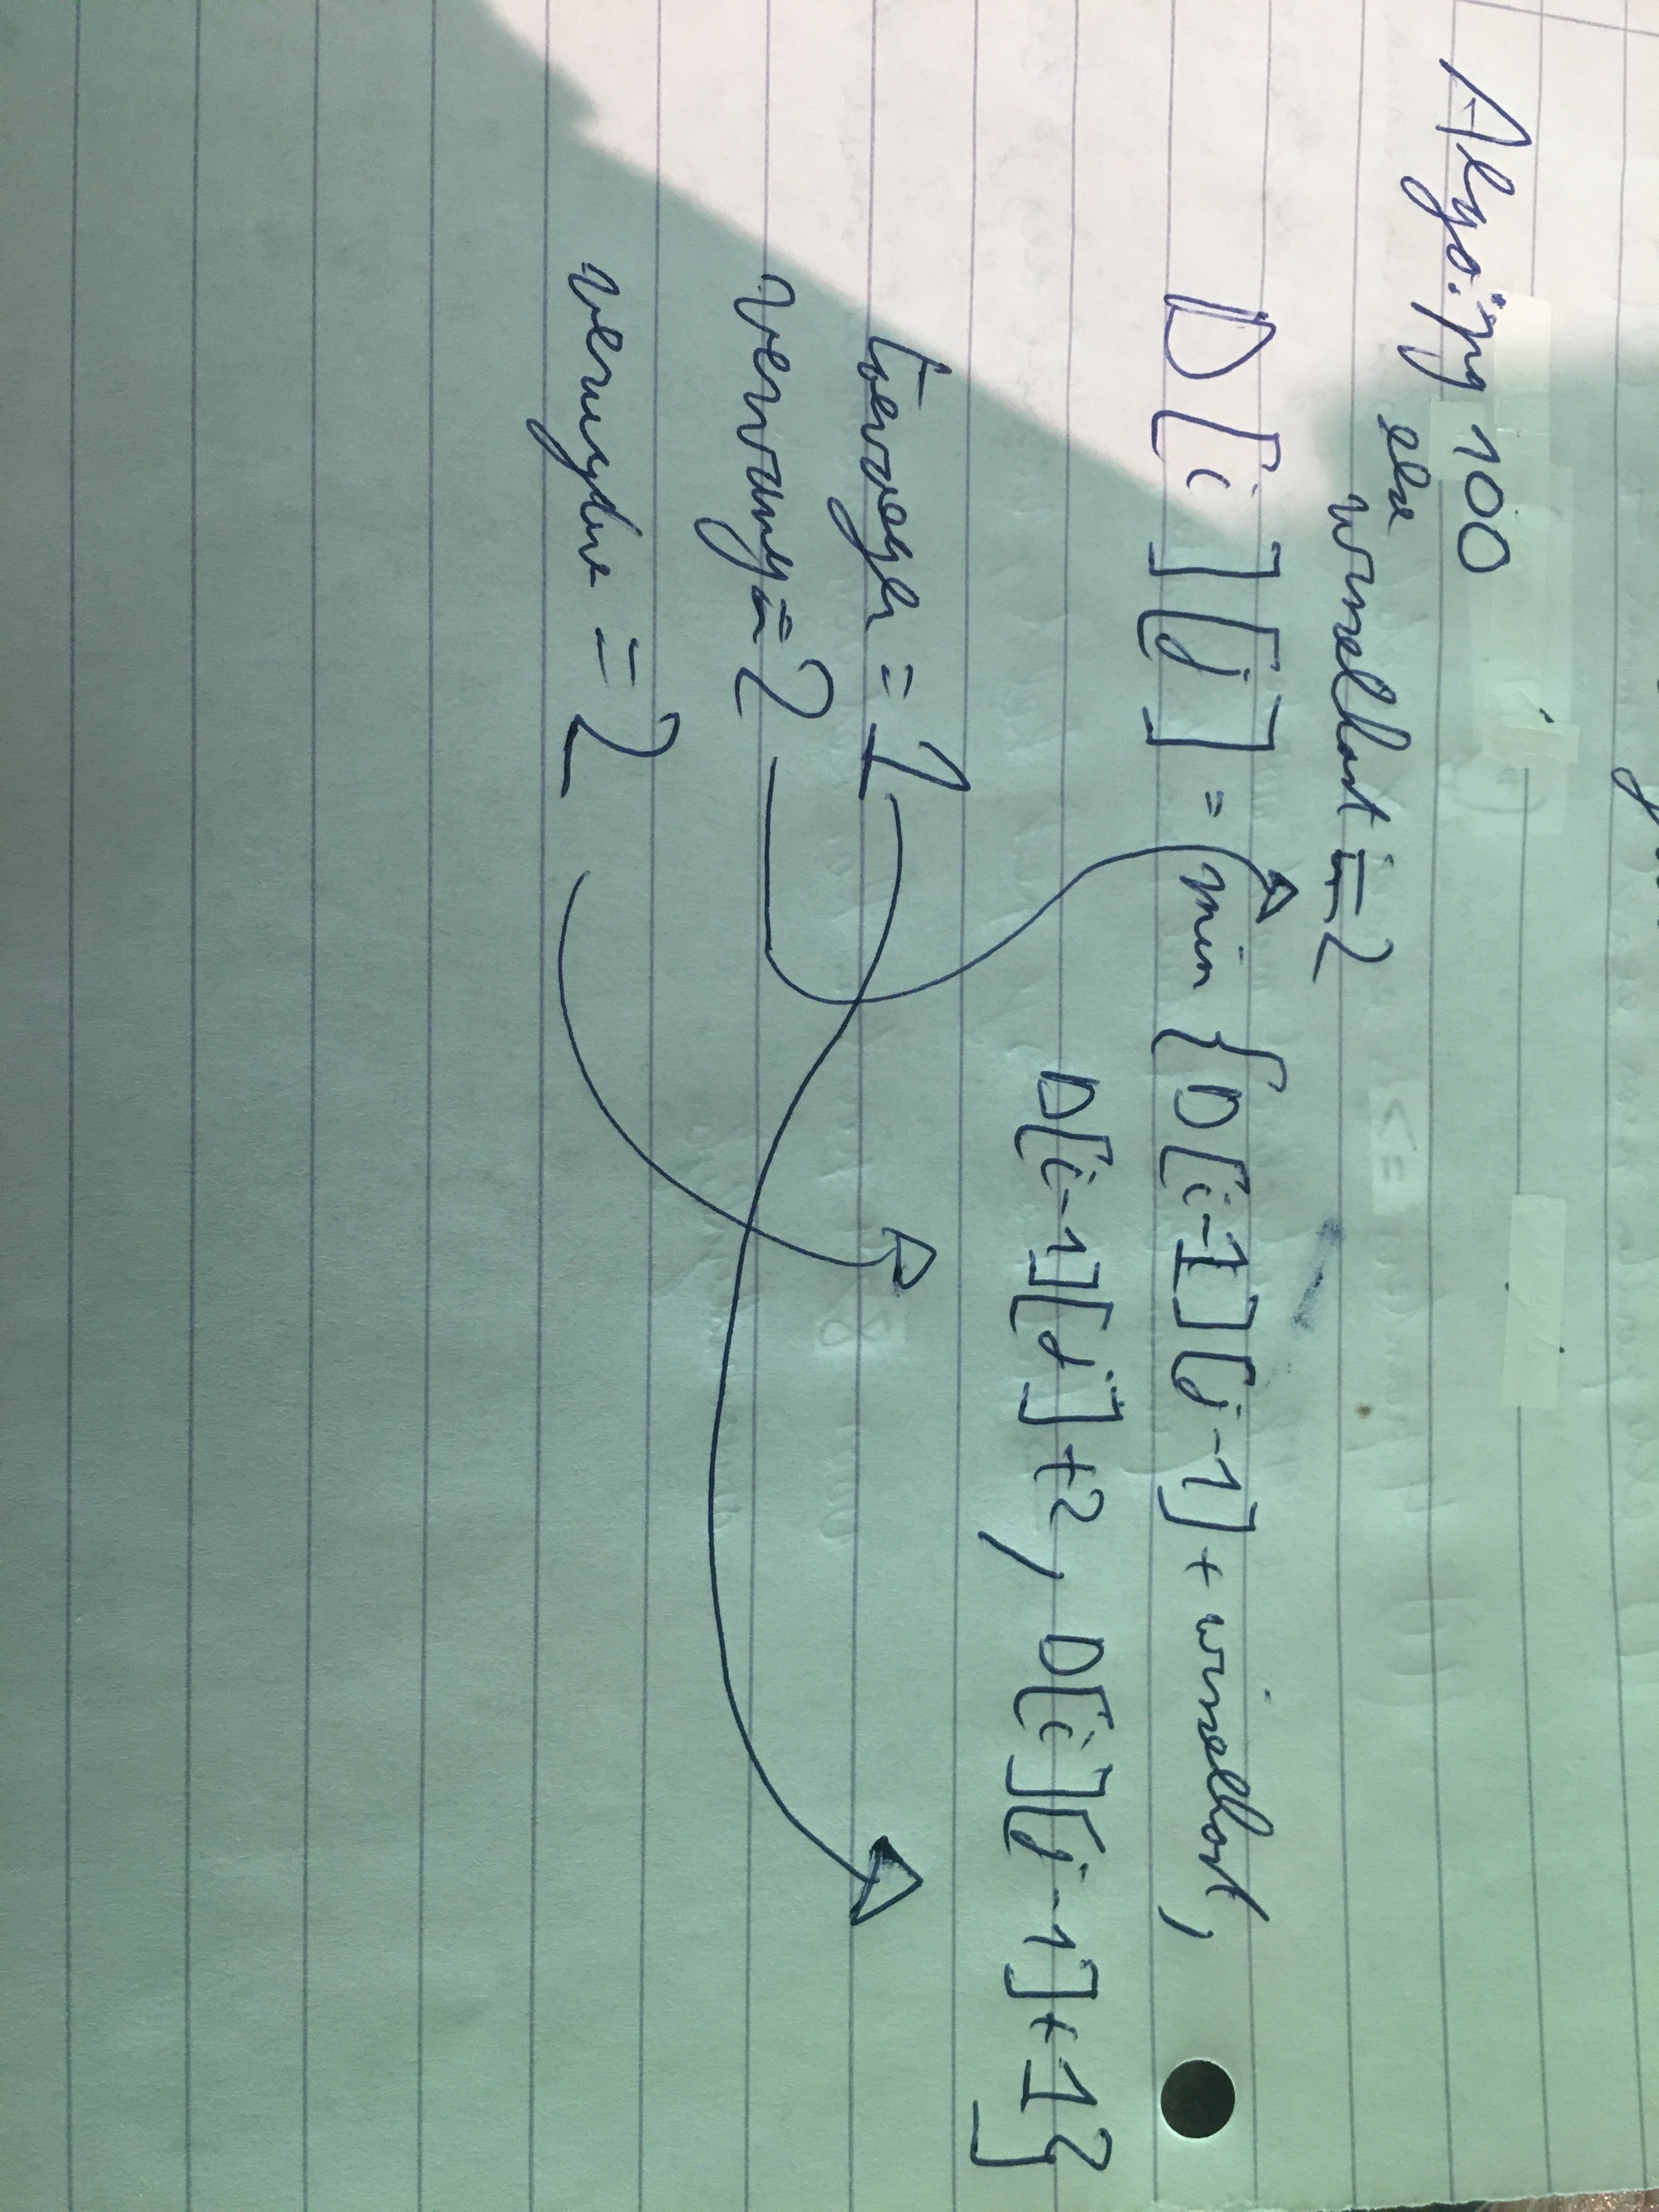 Algo: pg 100
else
wisselkost = 2
D[i][j] = min {D[i-1][j-1] + wisselkost,
D[i-1][j] + 2, D[i][j-1] + 1}
toevoegen = 1
vervang = 2
verwijder = 2